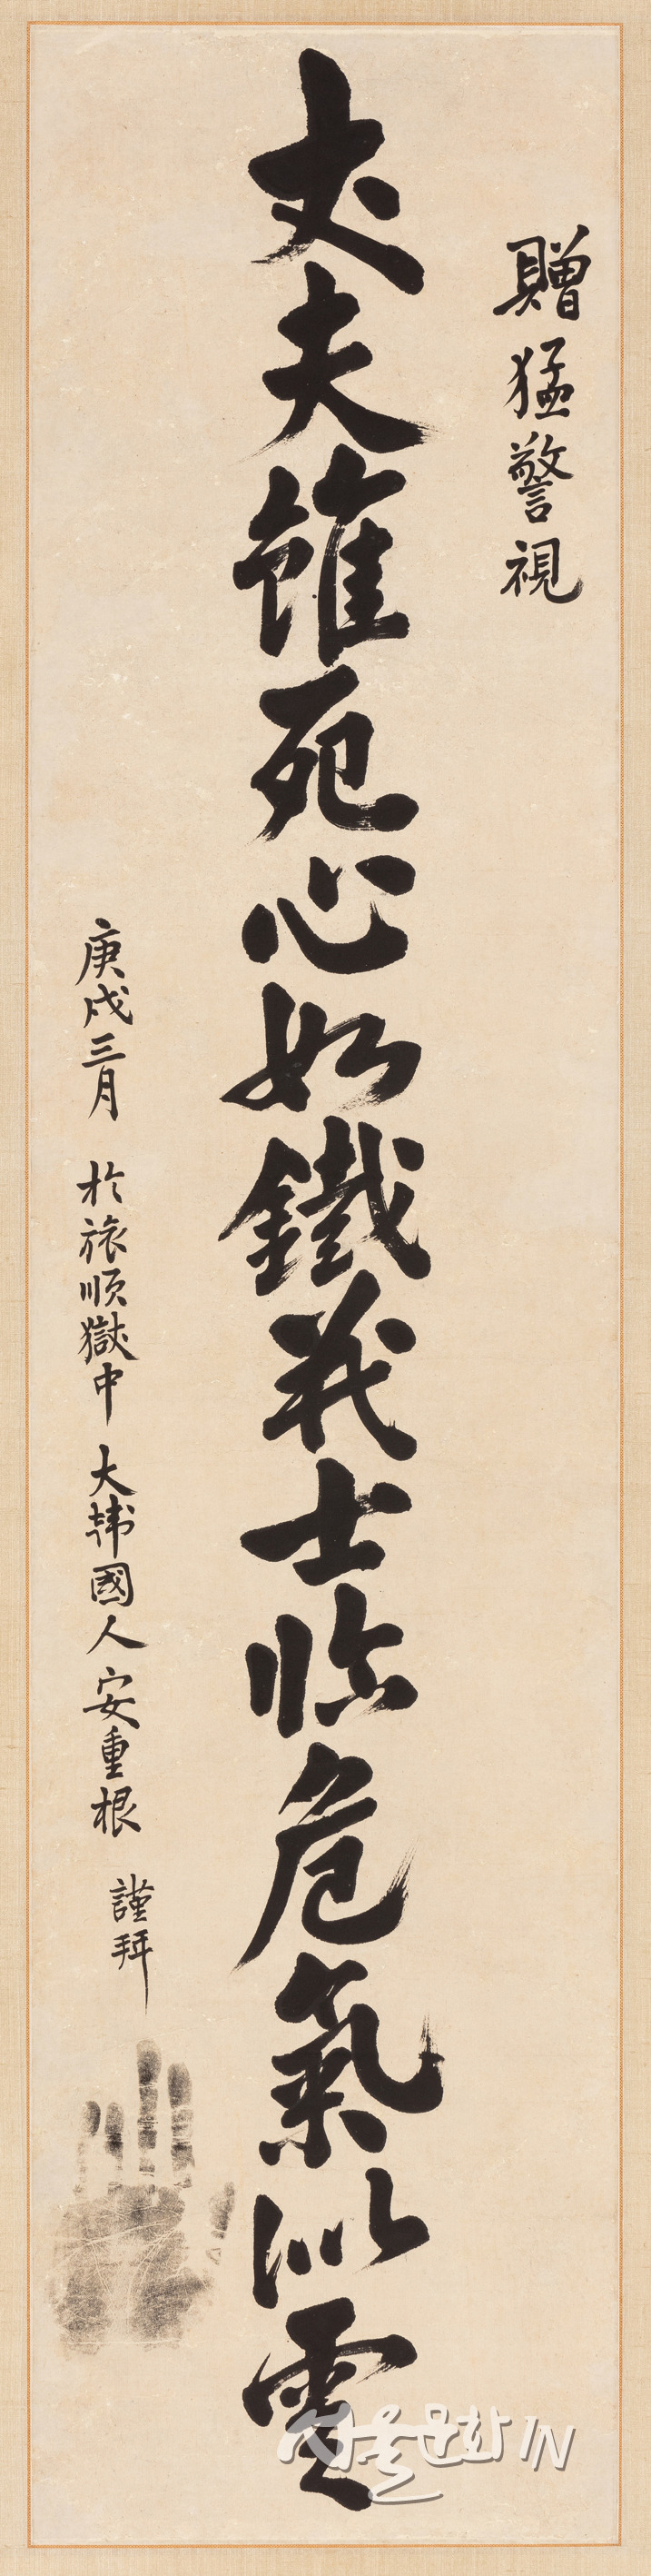 贈猛警視
丈夫雖死心如鐵義士臨危氣似雲
庚戌三月 於旅順獄中 大韓國人 安重根 謹拜
서울문화IN